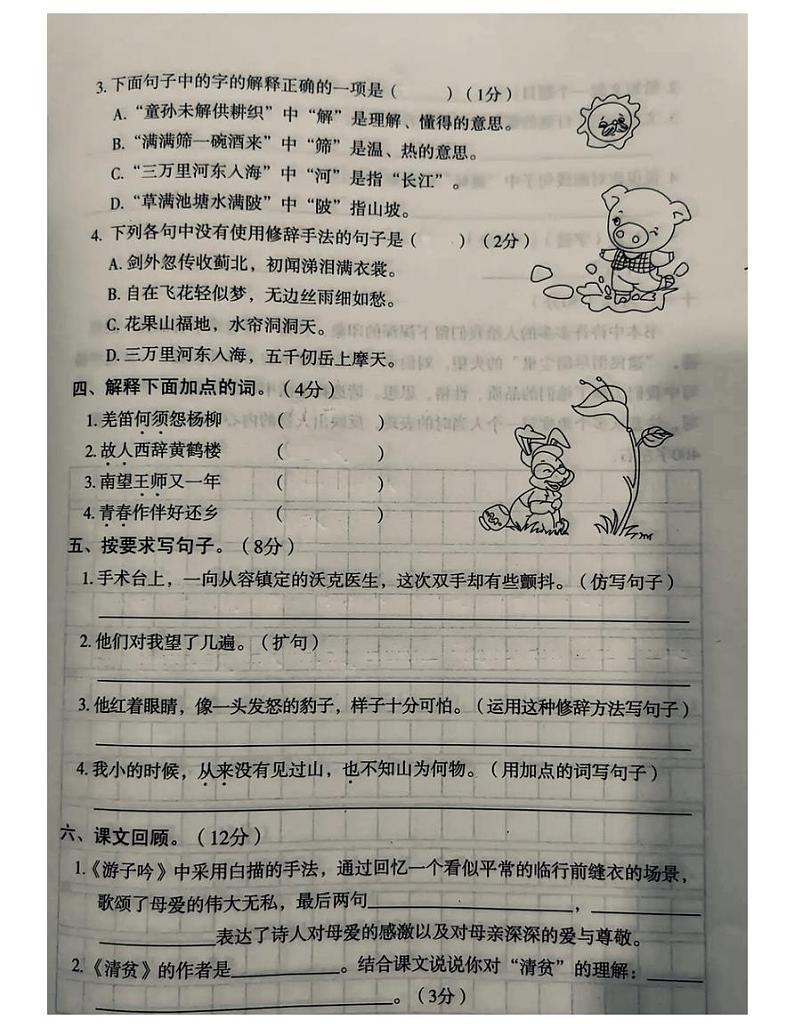 3. 下面句子中的字的解释正确的一项是（　　）（1分）
A. “童孙未解供耕织”中“解”是理解、懂得的意思。
B. “满满筛一碗酒来”中“筛”是温、热的意思。
C. “三万里河东入海”中“河”是指“长江”。
D. “草满池塘水满陂”中“陂”指山坡。
4. 下列各句中没有使用修辞手法的句子是（　　）（2分）
A. 剑外忽传收蓟北，初闻涕泪满衣裳。
B. 自在飞花轻似梦，无边丝雨细如愁。
C. 花果山福地，水帘洞洞天。
D. 三万里河东入海，五千仞岳上摩天。
四、解释下面加点的词。（4分）
1. 羌笛何须怨杨柳（　　）
2. 故人西辞黄鹤楼（　　）
3. 南望王师又一年（　　）
4. 青春作伴好还乡（　　）
五、按要求写句子。（8分）
1. 手术台上，一向从容镇定的沃克医生，这次双手却有些颤抖。（仿写句子）
2. 他们对我望了几遍。（扩句）
3. 他红着眼睛，像一头发怒的豹子，样子十分可怕。（运用这种修辞方法写句子）
4. 我小的时候，从来没有见过山，也不知山为何物。（用加点的词写句子）
六、课文回顾。（12分）
1.《游子吟》中采用白描的手法，通过回忆一个看似平常的临行前缝衣的场景，
歌颂了母爱的伟大无私，最后两句________，________
________表达了诗人对母爱的感激以及对母亲深深的爱与尊敬。
2.《清贫》的作者是________。结合课文说说你对“清贫”的理解：____
________。（3分）